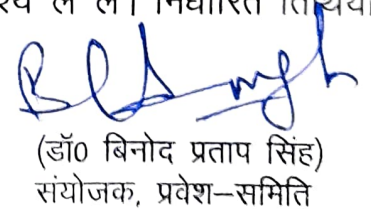 ले लें। निर्धारित
(डॉ0 बिनोद प्रताप सिंह)
संयोजक, प्रवेश–समिति